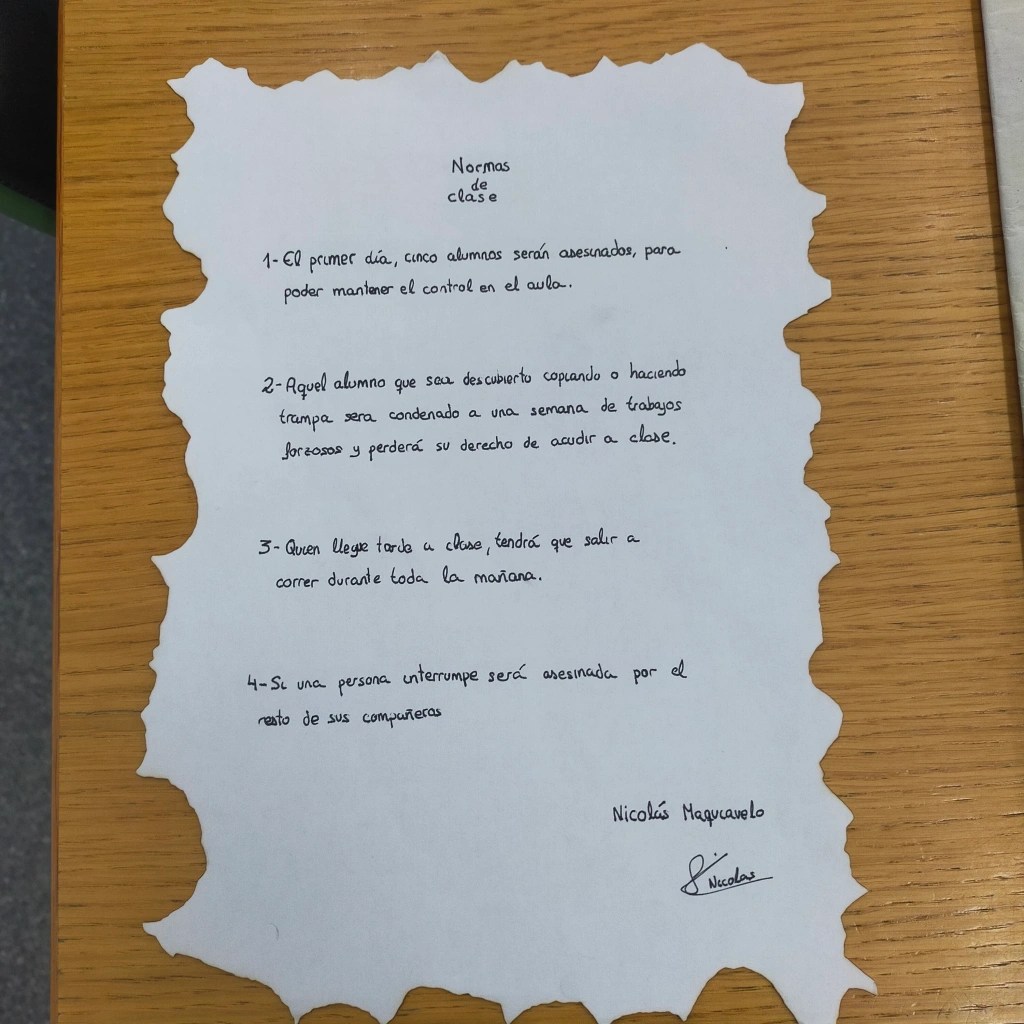 Normas
de
clase
1- El primer día, cinco alumnos serán asesinados, para
poder mantener el control en el aula.
2- Aquel alumno que sea descubierto copiando o haciendo
trampa sera condenado a una semana de trabajos
forzosos y perderá su derecho de acudir a clase.
3- Quien llegue tarde a clase, tendrá que salir a
correr durante toda la mañana.
4- Si una persona interrumpe será asesinada por el
resto de sus compañeros
Nicolás Maquiavelo
Nicolas